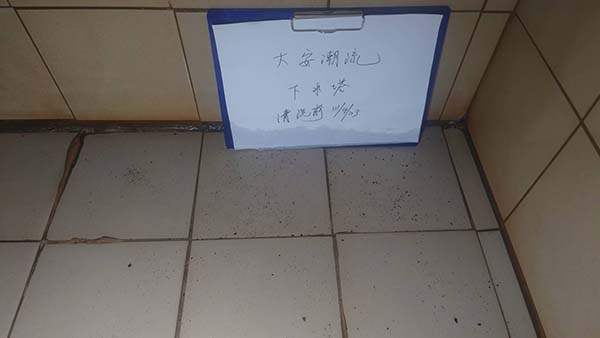 大安潮流
下水塔
清洗前 111/9/23